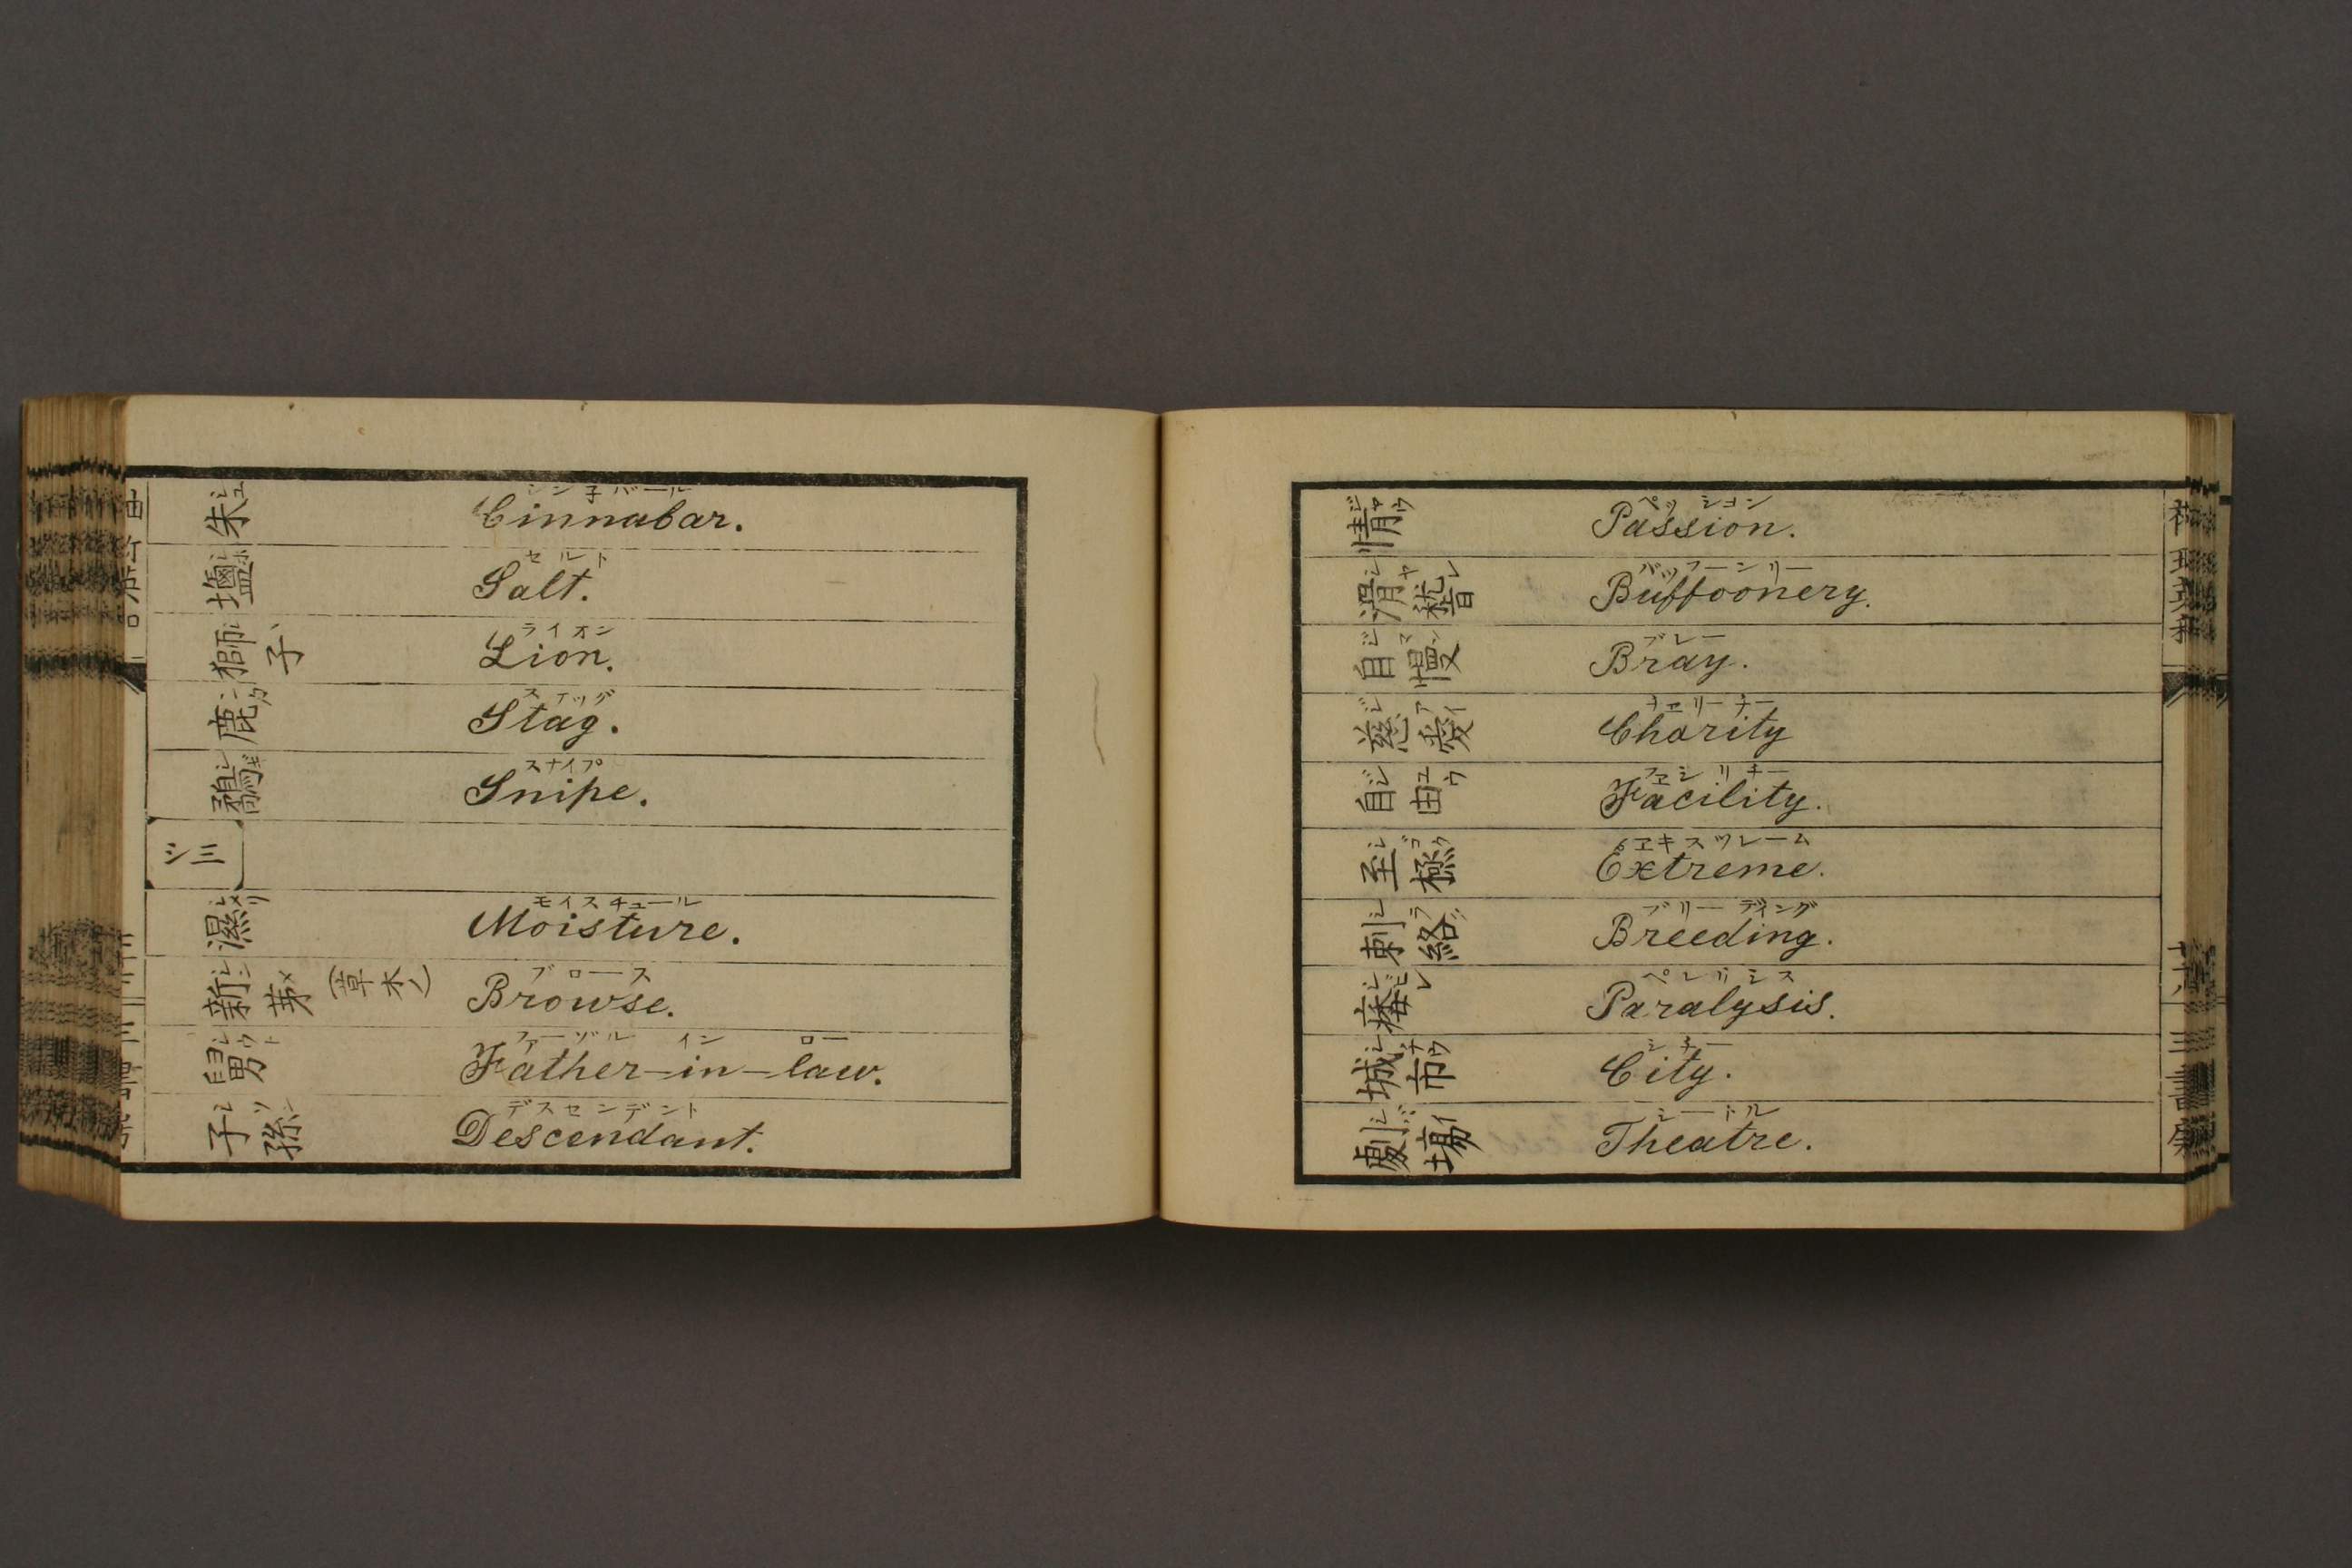 朱 シュ シン子バール Cinnabar.
鹽 シホ セルト Salt.
獅子 シヽ ライオン Lion.
鹿 シカ スタッグ Stag.
鷸 シギ スナイプ Snipe.
シ三
濕 シメリ モイスチュール Moisture.
新芽 シンメ (草木ノ) ブロース Browse.
舅 シウト ファーヅル イン ロー Father-in-law.
子孫 シソン デスセンデント Descendant.
情 ジャウ ペッション Passion.
滑稽 シヤレ バッフーンリー Buffoonery.
自慢 ジマン ブレー Bray.
慈愛 ジアイ チェリーチー Charity
自由 ジユウ フェシリチー Facility.
至極 シゴク エキスツレーム Extreme.
刺絡 シラク ブリーディング Breeding.
痿 シビレ ペレリシス Paralysis.
城市 シチー City.
劇場 シバイ シートル Theatre.